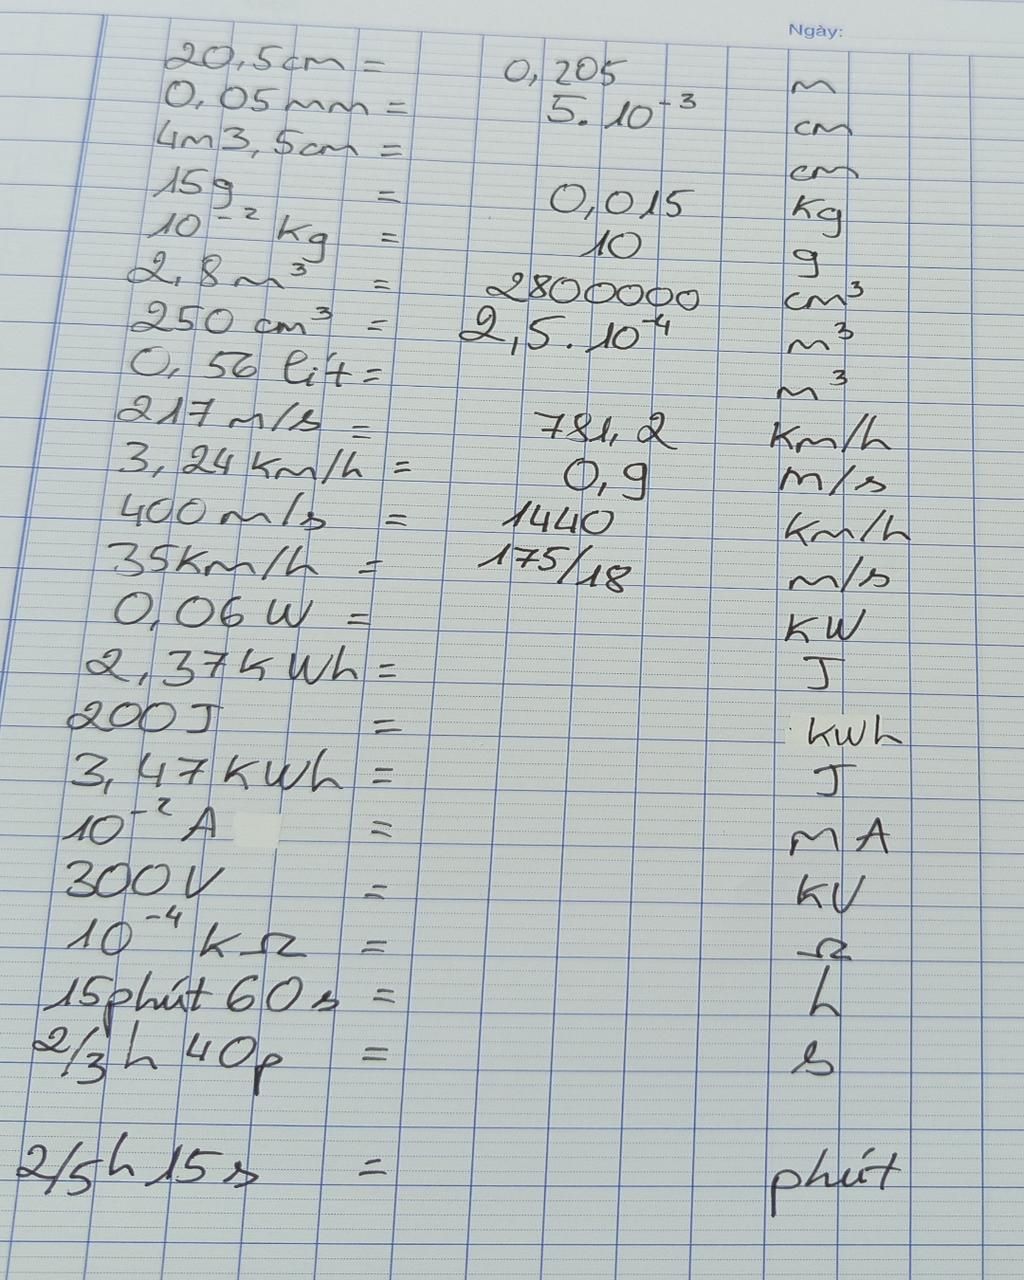 Ngày:
20,5cm = 0,205 m
0,05mm = 5.10⁻³ cm
4m3,5cm = cm
15g = 0,015 Kg
10⁻² Kg = 10 g
2,8m³ = 2800000 cm³
250 cm³ = 2,5.10⁻⁴ m³
0,56 lít = m³
217m/s = 781,2 Km/h
3,24Km/h = 0,9 m/s
400m/s = 1440 Km/h
35Km/h = 175/18 m/s
0,06 W = KW
2,37KWh = J
200J = KWh
3,47KWh = J
10⁻² A = mA
300V = KV
10⁻⁴ KΩ = Ω
15phút 60s = h
2/3 h 40p = s
2/5h 15s = phút